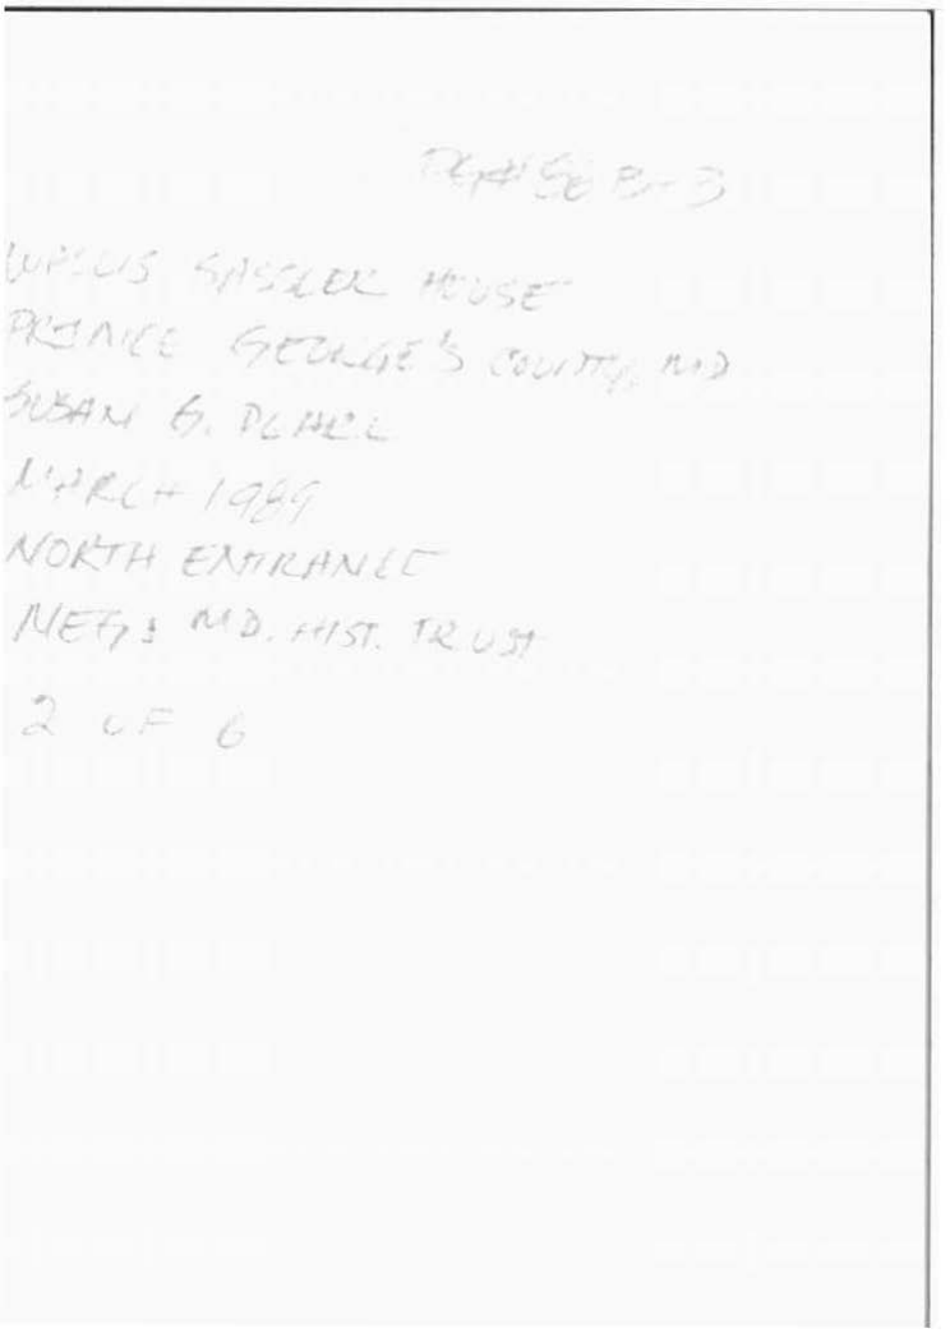 PG# 86B-3
HOUSE
PRINCE GEORGE'S COUNTY, MD
SUSAN G. PEARL
MARCH 1989
NORTH ENTRANCE
NEG: MD. HIST. TRUST
2 OF 6